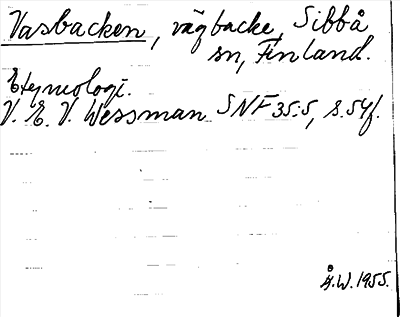 Vasbacken, vägbacke, Sibbå
sn, Finland.
Etymologi.
V. E. V. Wessman SNF 35:5, s. 54f.
Å.W. 1955.